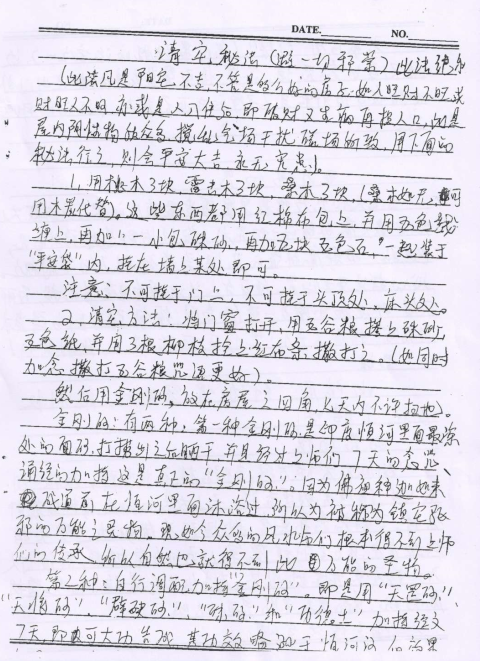 DATE. NO.
清宅秘法（做一切邪祟）此法很
（此法凡是阳宅不吉，不管是什么的房子，如人旺财不旺或
财旺人不旺，亦或是人入住后即破财又生病再损人口，此是
屋内阴性物体众多，搅乱气场干扰磁场所致，用下面的
秘法行之，则会平安大吉永无灾患）。
1、用桃木3块，雷击木3块，桑木3块，（桑木如无，可
用木炭代替）。这些东西都用红棉布包上，并用五色线
缠上，再加上一小包硃砂，再加五块五色石，一起装于
"平安袋"内，挂在墙上某处即可。
注意：不可挂于门上，不可挂于头顶处、床头处。
2、清宅方法：将门窗打开，用五谷粮拌上硃砂，
五色纸，并用3根柳枝拴上红布条，撒打之。（如同时
加念撒打五谷粮咒语更好）。
然后用金刚砂，放在房屋之四角七天内不许扫地）。
金刚砂：有两种，第一种金刚砂是印度恒河里面最深
处的面砂，打捞出之后晒干并且经过上师们7天的念咒、
诵经的加持这是真正的"金刚砂"；因为佛祖释迦如来
成道前在恒河里面沐浴过，所以为被称为镇宅驱
邪的万能之圣物。现如今众多的风水师们根本得不到上师
们的传承，所以自然也就得不到此万能的圣物。
第二种：自行调配加持"金刚砂"。即是用"天罡砂"
"天 砂"、"辟 砂"、"硃砂"和"功德土"加持经文
7天即可大功告成，其功效略 于恒河沙但效果